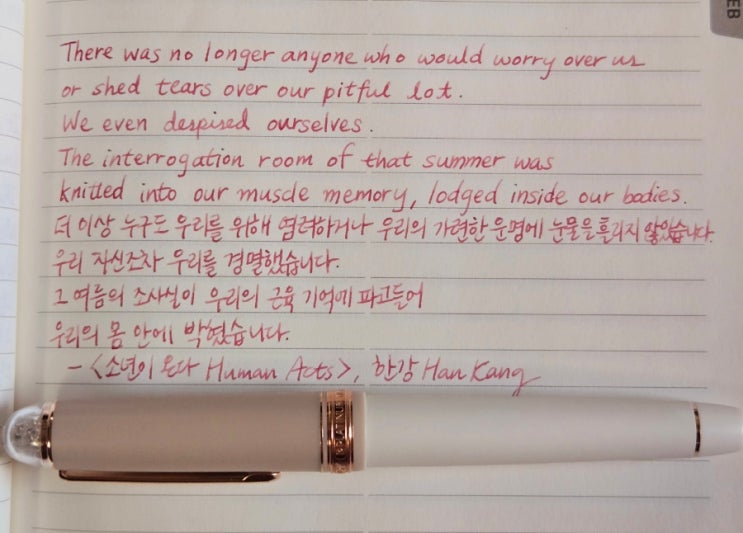 EB
There was no longer anyone who would worry over us
or shed tears over our pitful lot.
We even despised ourselves.
The interrogation room of that summer was
knitted into our muscle memory, lodged inside our bodies.
더 이상 누구도 우리를 위해 염려하거나 우리의 가련한 운명에 눈물을 흘리지 않았습니다.
우리 자신조차 우리를 경멸했습니다.
그 여름의 조사실이 우리의 근육 기억에 파고들어
우리의 몸 안에 박혔습니다.
- <소년이 온다 Human Acts>, 한강 Han Kang